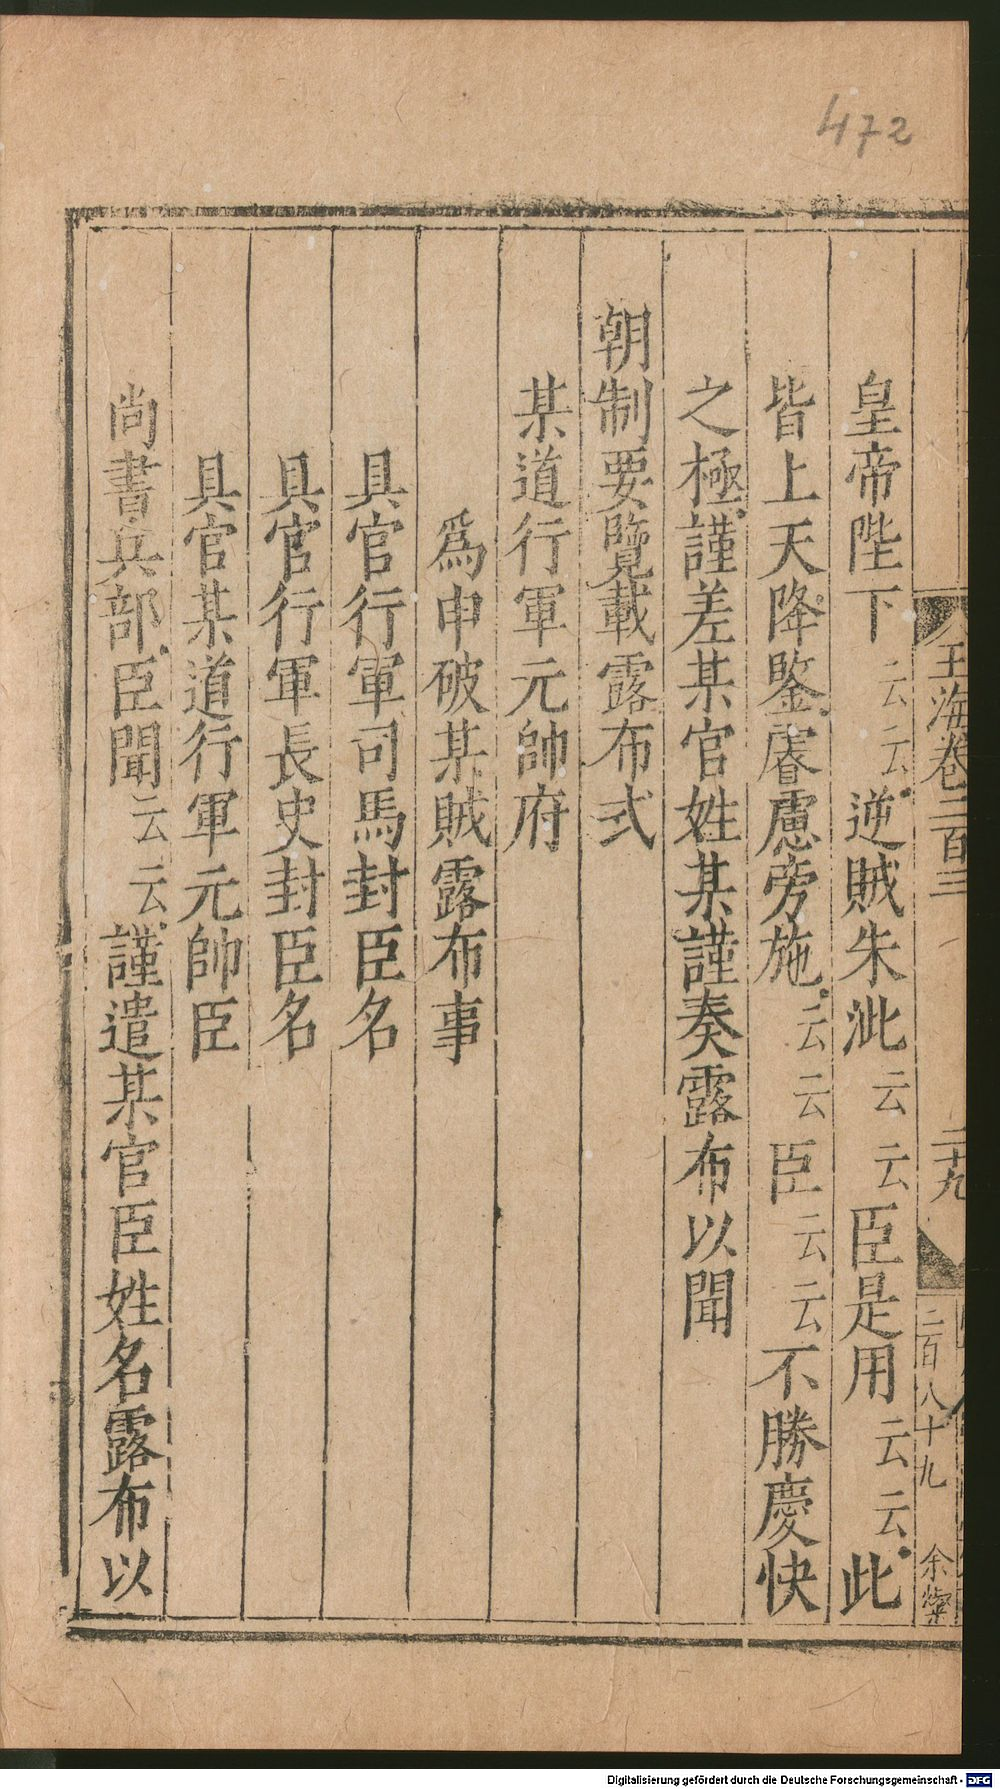 472
玉海卷二百三
二十九
二百八十九
余
皇帝陛下云云逆賊朱泚云云臣是用云云此
皆上天降鑒睿慮旁施云云臣云云不勝慶快
之極謹差某官姓某謹奏露布以聞
朝制要覽載露布式
某道行軍元帥府
爲申破某賊露布事
具官行軍司馬封臣名
具官行軍長史封臣名
具官某道行軍元帥臣
尚書兵部臣聞云云謹遣某官臣姓名露布以
Digitalisierung gefördert durch die Deutsche Forschungsgemeinschaft - DFG